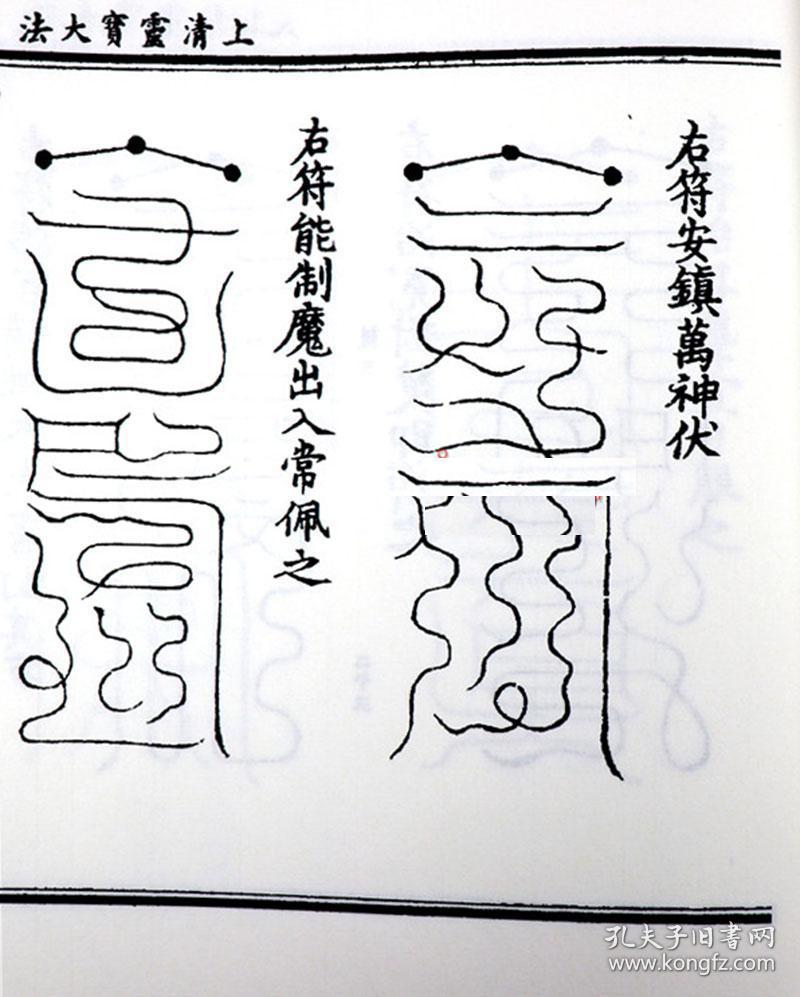 上清靈寶大法
右符安鎮萬神伏
右符能制魔出入常佩之
孔夫子旧书网
www.kongfz.com